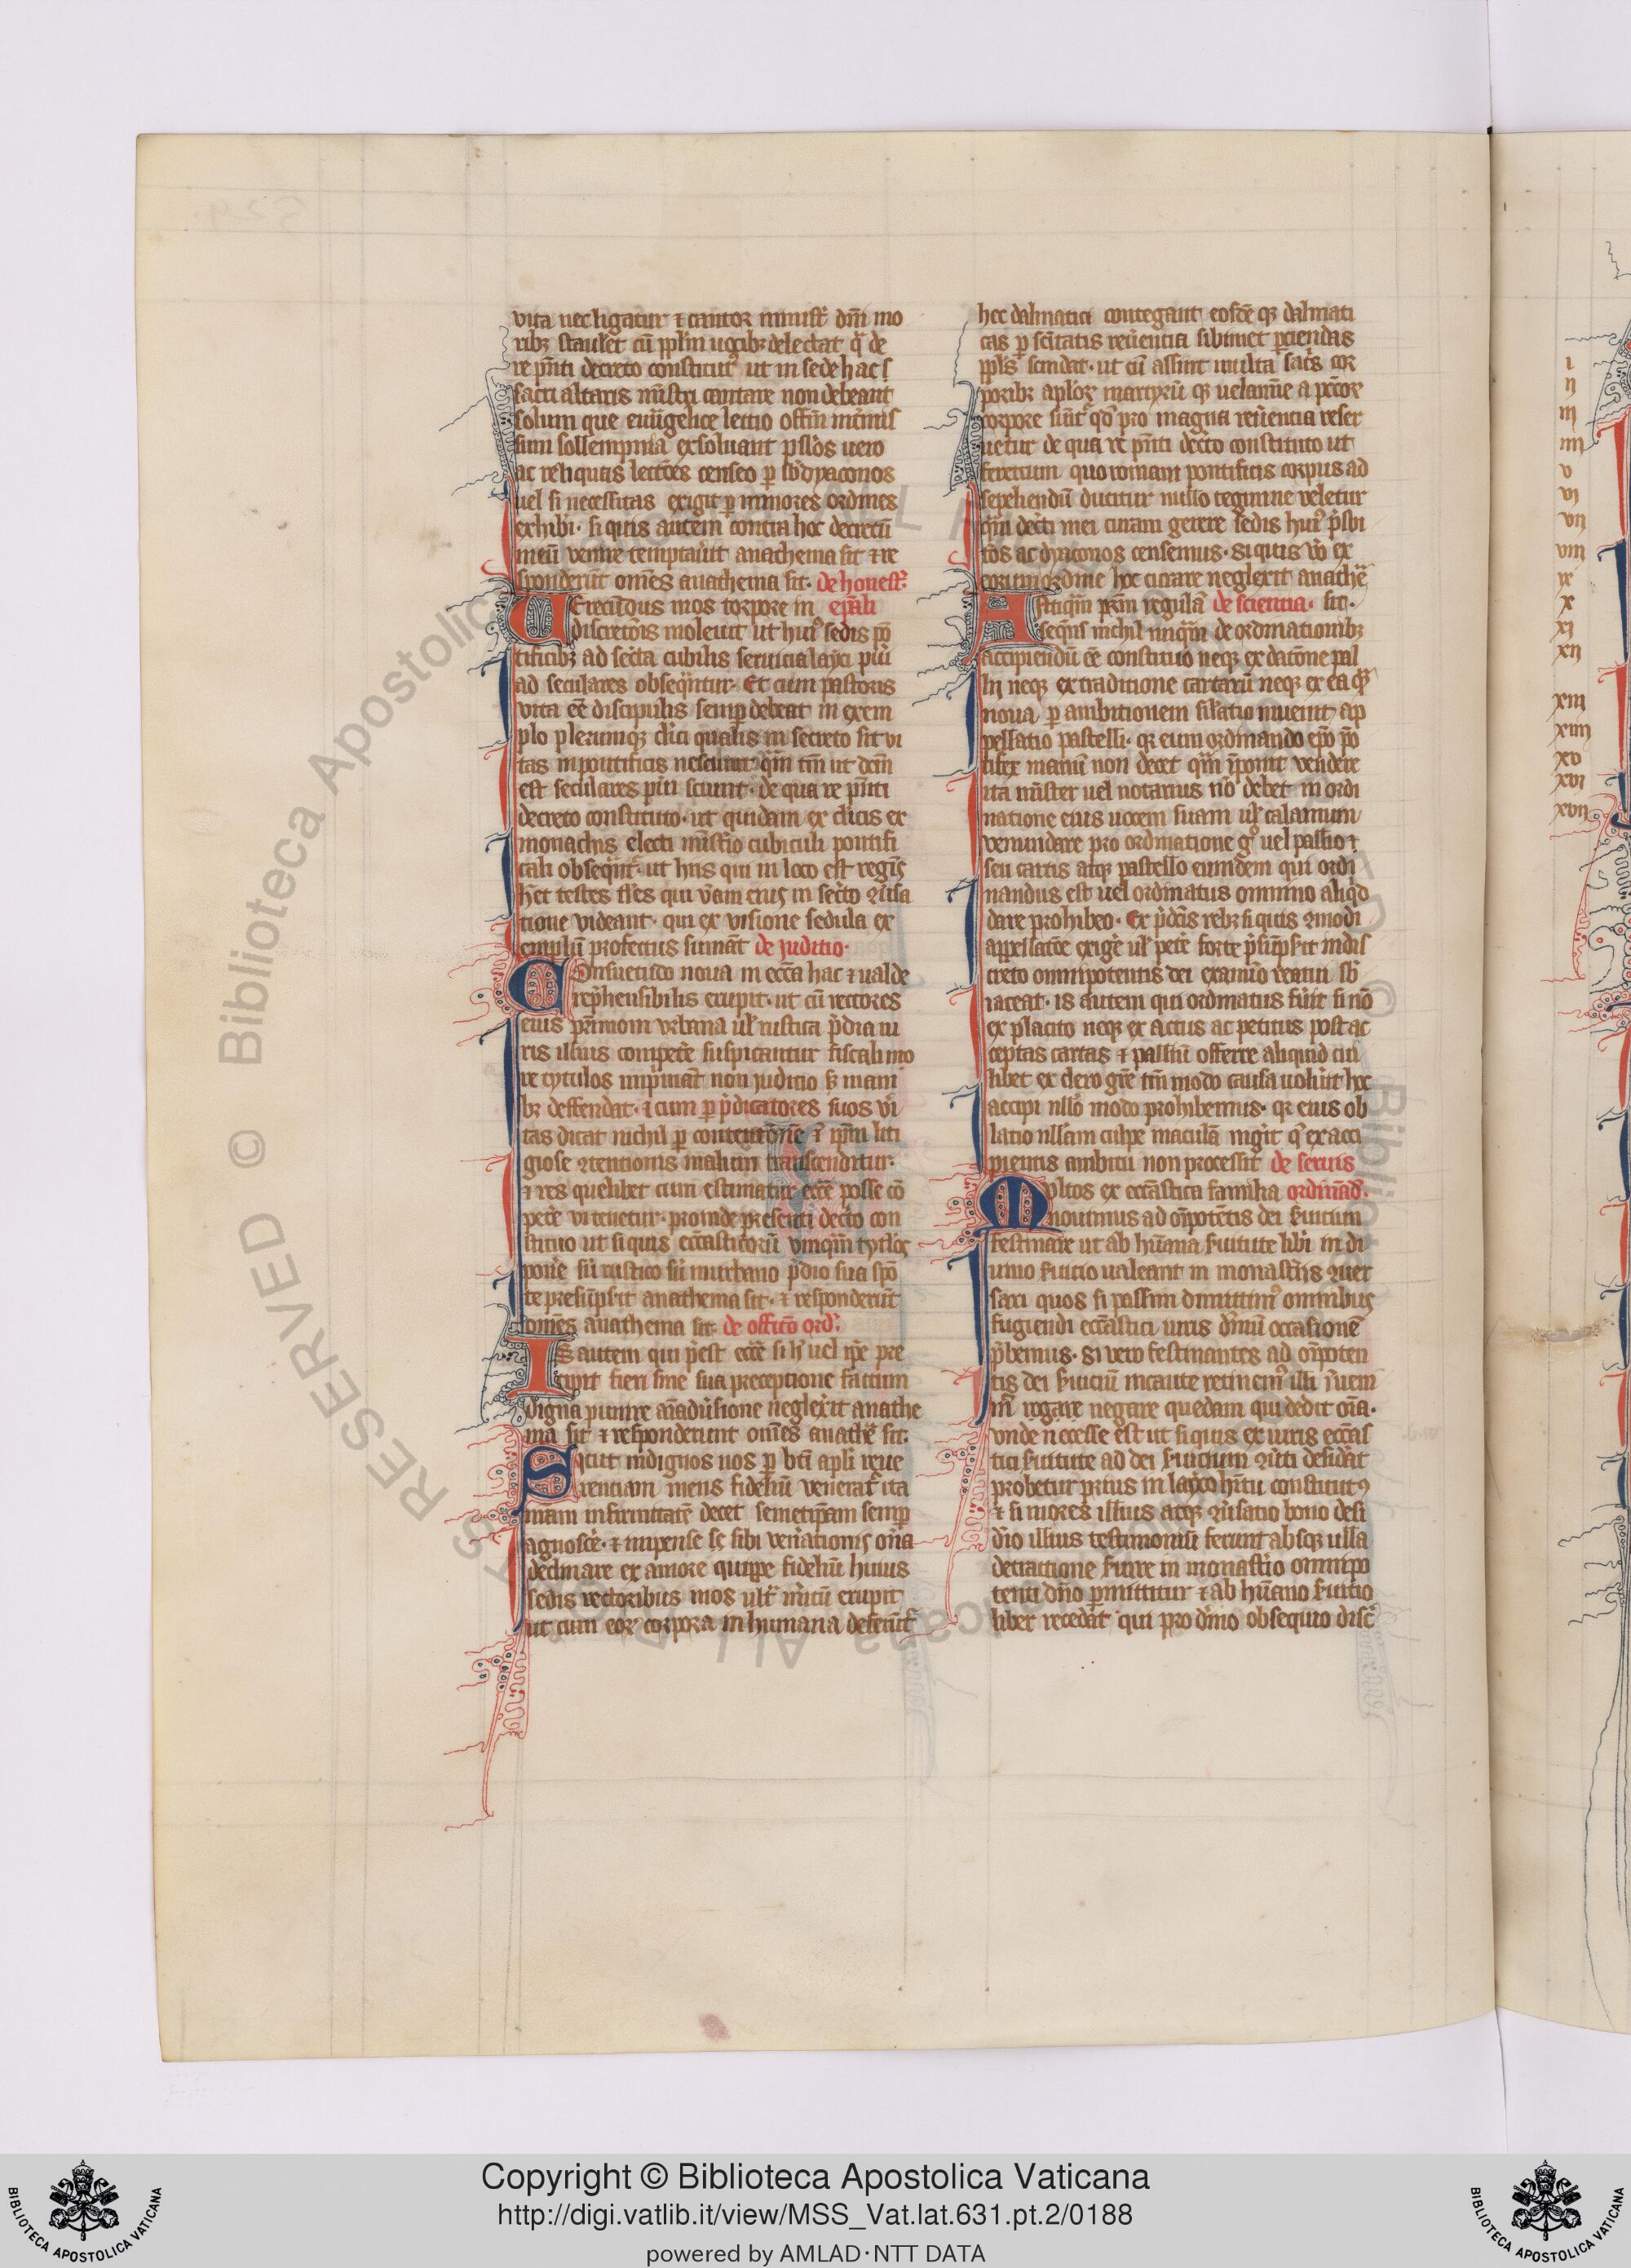 vita negligatur ⁊ cantor minist̄ dn̄m mo
ribꝫ stimulet cū pp̄lm uocibꝫ delectat q̄ de
re p̄nti decreto constitut᷒ ut in sede hac s
sacri altaris mīstri cantare non debeant
solum que euūgelice lectio offm̄ int̄ mis
sum sollempnia exsoluant psl̄os uero
ac reliquas lectōes censeo ꝑ sb̄dyaconos
uel si necessitas exigit ꝑ minores ordines
exhibi· si quis autem contra hoc decretū
meū venire temptauīt anathema sit ⁊ re
sponderūt om̄es anathema sit. de honest᷒.
Verecūdus mos torpore in ep̄ali
discretōis moleuit ut hui᷒ sedis pō
tificibꝫ ad sec̄ta cubilis seruicia layci pui᷒
ad seculares obseq̄ntur. Et cum pastoris
vita eē discipulis semꝑ debeat in exem
plo plerumqꝫ clici qualis in secreto sit vi
tas in pontificis nesciunt q̄m tn̄ ut dcm̄
est seculares pūi sciunt· de qua re p̄nti
decreto constituto· ut quidam ex clicis ex
monachis electi mīstio cubiculi pontifi
cali obseq̄nt᷒· ut hiis qui in loco est regīs
het testes tl̄es qui v̄am eius in sec̄to ꝯuersa
tione videant· qui ex visione sedula ex
emplū profectus sumāt de judicio·
Consuetudo noua in ecc̄a hac ⁊ valde
rep̄hensibilis erupit· ut cū rectores
eius pr̄imonia vrbana ul̄ rustica p̄dia iu
ris illius compete᷒ suspicantur fiscali mo
re tytulos imp̄mat᷒ non judicio sꝫ mani
bꝫ deffendat· ⁊ cum ꝑ p̄dicatores suos v̄i
tas dicat nichil ꝑ contentiōne ⁊ ip̄m liti
giose ꝯtentionis malum transcenditur·
⁊ res quelibet cum estimatur ecc̄e posse cō
pete᷒ vi tenetur· proinde presenti dec̄to con
stituo ut si quis ecc̄asticorū vnq̄m tytl̄os
pone᷒ siū rustico siū in urbano p̄dio sua spō
te presūpsit anathema sit· ⁊ responderūt
om̄es anathema sit. de officō ord᷒.
Is autem qui p̄est ecc̄e si h᷒ uel ip̄e pre
cepit fieri siue sua preceptione factum
digna punire aīaduersione neglexīt anathe
ma sit ⁊ responderunt om̄es anathē sit·
Sicut indignos nos ꝑ bt̄i apl̄i reue
rentiam mens fideliū venerat᷒ ita
nr̄am infirmitatē decet semetip̄am semꝑ
agnosce᷒· ⁊ impense se sibi venationis on̄a
declinare ex amore quippe fideliū huius
sedis rectoribus mos ult᷒ m̄itū erupit
ut cum eoꝝ corpora in humana deferūt᷒
hec dalmatici contegant eosdē qꝫ dalmati
cas ꝑ sc̄itatis reūentia sibimet ꝑciendas
ppl̄s scindat· ut cū assint multa sac̄s cor
poribꝫ apl̄oꝝ martyrū qꝫ uelamīe a pccoꝝ
corpore sūt᷒ qd̄ pro magna reūentia reser
uetur de qua re p̄nti dec̄to constituto ut
feretrum quo romani pontificis corpus ad
sepeliendū ducitur nullo tegmine veletur
q̄m dec̄ti mei curam gerere sedis hui᷒ p̄sbi
t̄os ac dyaconos censemus· si quis v̄o ex
eorum ordine hoc curare neglexit anathē
Antiq̄m pr̄m regulā de scientia. sit·
seq̄ns nichil unq̄m de ordinationibꝫ
accipiendū eē constituo neqꝫ ex datōne pal
lij neqꝫ ex traditione cartarū neqꝫ ex ea q̄
noua ꝑ ambitionem sil̄atio inuenit ap
pellatio pastelli· qꝛ eum ordinando ep̄o pō
tifex manū non decet q̄m īponit vendere
ita mīster uel notarius nō debet in ordi
natione eius uocem suam ul̄ calamum
venundare pro ordinatione g᷒ uel pallio ⁊
seu cartis atqꝫ pastello eumdem qui ordi
nandus est uel ordinatus omnino aliq̄d
dare prohibeo· Ex p̄dc̄is rebꝫ si quis ꝯmodi
appellatōe exige᷒ ul̄ pete᷒ forte p̄sūpsit in dis
creto omnipotentis dei examīo reatui sb̄
iaceat· is autem qui ordinatus fūit si nō
ex placito neqꝫ ex actus ac petitus post ac
ceptas cartas ⁊ palliū offerre aliquid cui
libet ex clero gr̄e tm̄ modo causa uolūit hoc
accipi nllō modo prohibemus· qꝛ eius ob
latio nll̄am culpe maculā ingīt q̄ ex acci
pientis ambitu non processit de seruis
Multos ex ecc̄astica familia ordinād᷒.
nouimus ad oīpotētis dei s̄uitium
festinare ut ab hūana s̄uitute lib̄i in di
uino s̄uitio ualeant in monast̄iis ꝯuer
sari quos si passim dimittim᷒ omnibus
fugiendi ecc̄astici iuris dn̄iū occasionē
p̄bemus· si vero festinantes ad oīpoten
tis dei s̄uitiū incaute retinem᷒ illi īuem
m̄ rogare negare quedam qui dedit oīa·
vnde necesse est ut si quis ex iuris ecc̄as
tici s̄uitute ad dei s̄uitium ꝯuerti desid̄at
probetur prius in layco hītu constitut᷒
⁊ si mores illius atqꝫ ꝯuersatio bono desi
d̄io illius testimoniū ferunt absqꝫ ulla
detractione s̄uire in monast̄io omnipo
tenti dn̄o ꝑmittitur ⁊ ab hūano s̄uitio
liber recedat qui pro dīno obsequio disc᷒
i
ij
iij
iiij
v
vj
vij
viij
ix
x
xj
xij
xiij
xiiij
xv
xvi
xvij
Copyright © Biblioteca Apostolica Vaticana
http://digi.vatlib.it/view/MSS_Vat.lat.631.pt.2/0188
powered by AMLAD·NTT DATA
BIBLIOTECA APOSTOLICA VATICANA
BIBLIOTECA APOSTOLICA VATICANA